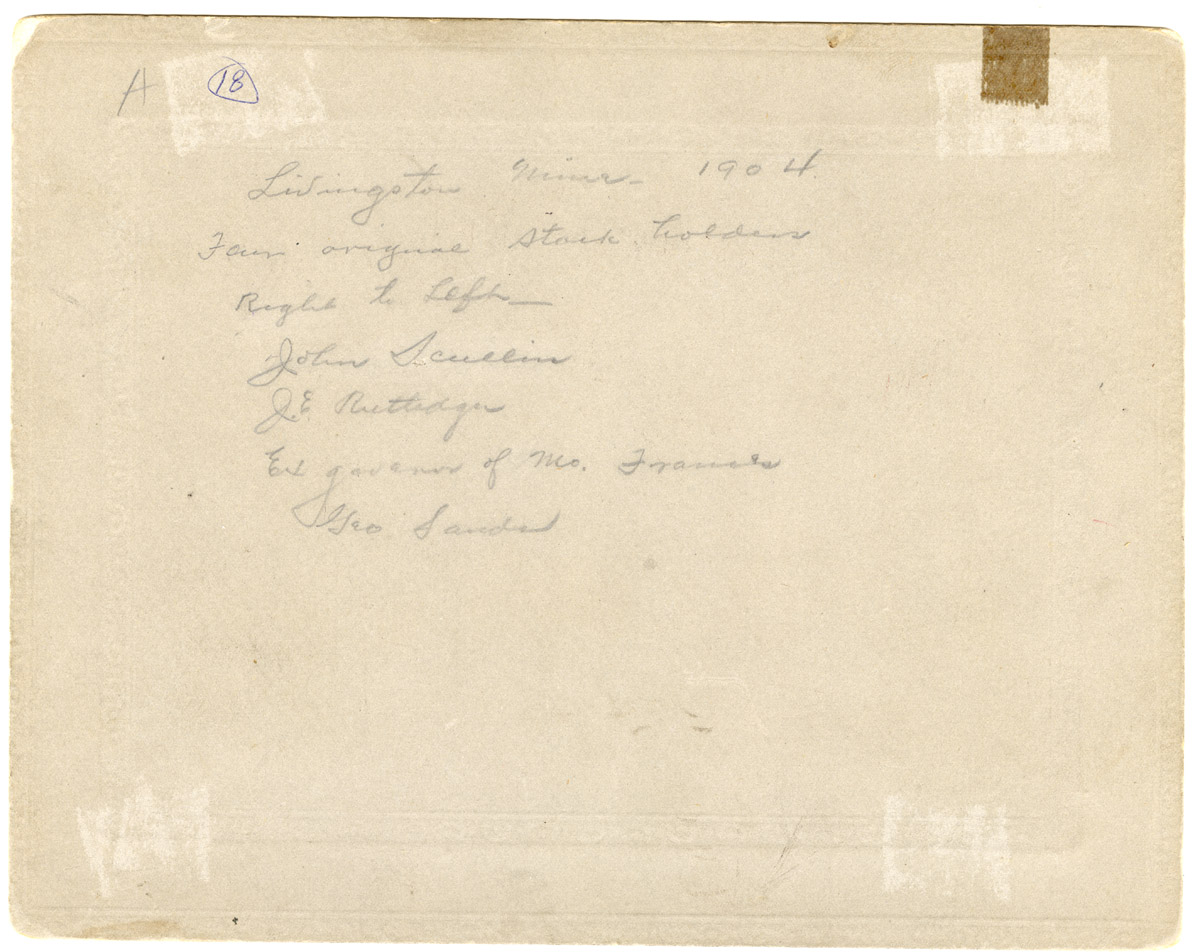 A 18
Livingston Mine - 1904.
Four original stock holders
Right to Left —
John Scullin
J.E. Rutledge
Ex govenor of Mo. Francis
Geo Sands